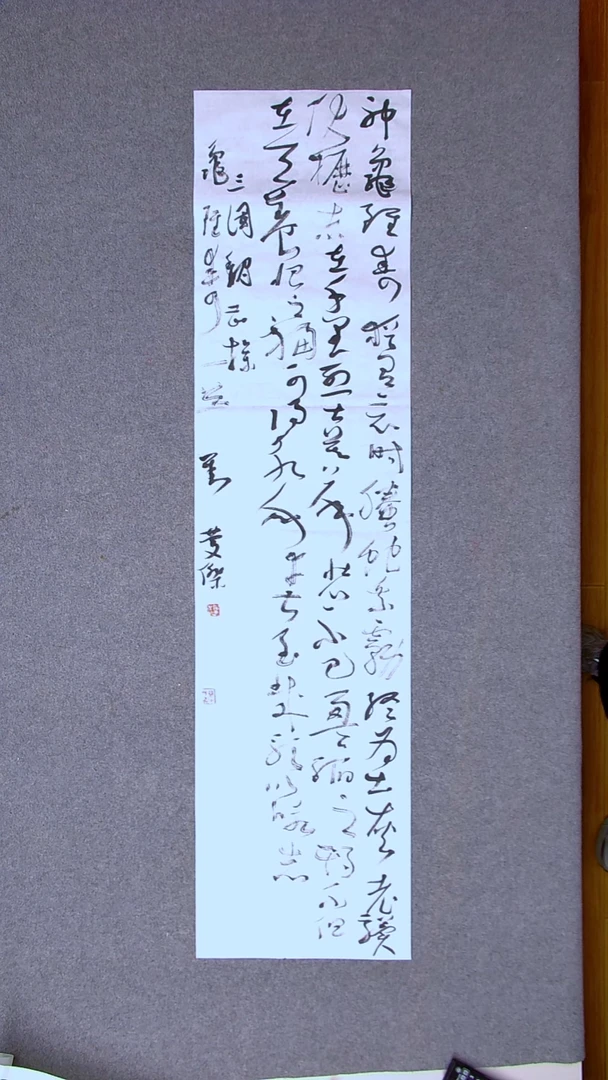 神龜雖壽猶有竟時騰蛇乘霧終為土灰老驥
伏櫪志在千里烈士暮年壯心不已盈縮之期不但
在天養怡之福可得永年幸甚至哉歌以詠志
三國魏曹操
龜雖壽